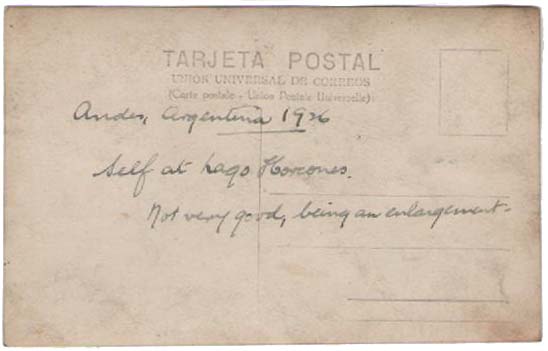 TARJETA POSTAL
UNIÓN UNIVERSAL DE CORREOS
(Carte postale - Union Postale Universelle)
Andes, Argentina 1926
Self at Lago Horcones.
Not very good, being an enlargement-